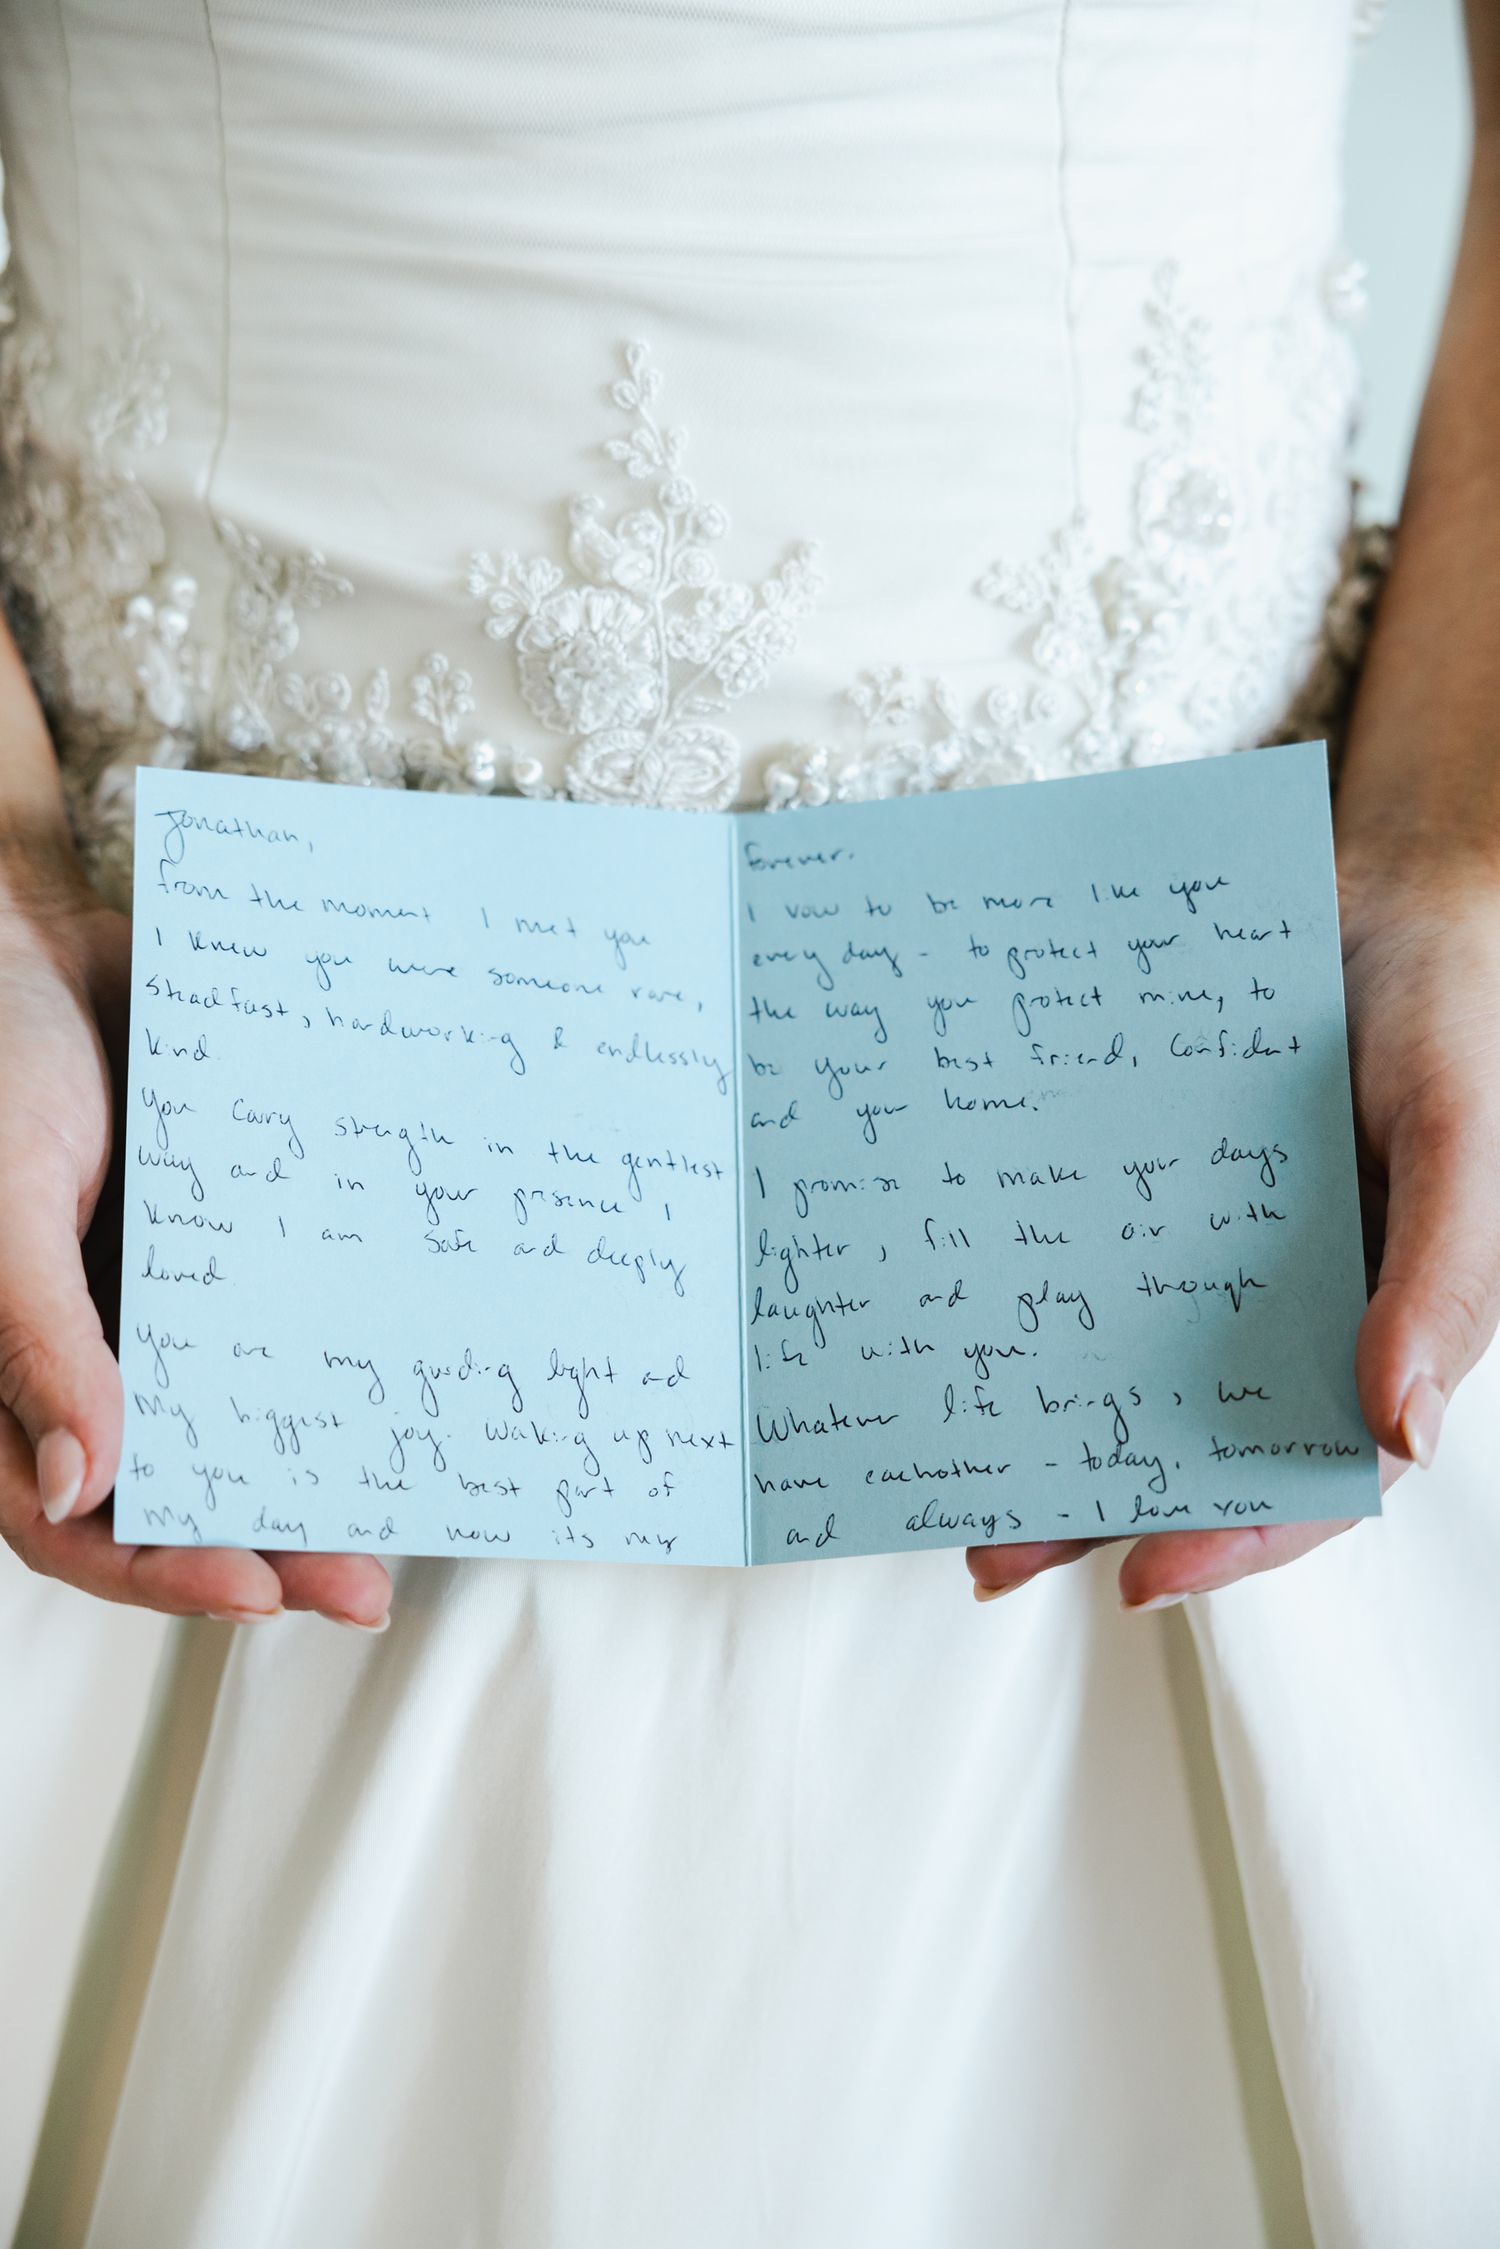 Jonathan,
from the moment I met you
I knew you were someone rare,
steadfast, hardworking & endlessly
kind.
You carry strength in the gentlest
way and in your presence I
know I am safe and deeply
loved.
You are my guiding light and
my biggest joy. Waking up next
to you is the best part of
my day and now its my
forever.
I vow to be more like you
every day - to protect your heart
the way you protect mine, to
be your best friend, confidant
and your home.
I promise to make your days
lighter, fill the air with
laughter and play through
life with you.
Whatever life brings, we
have eachother - today, tomorrow
and always - I love you